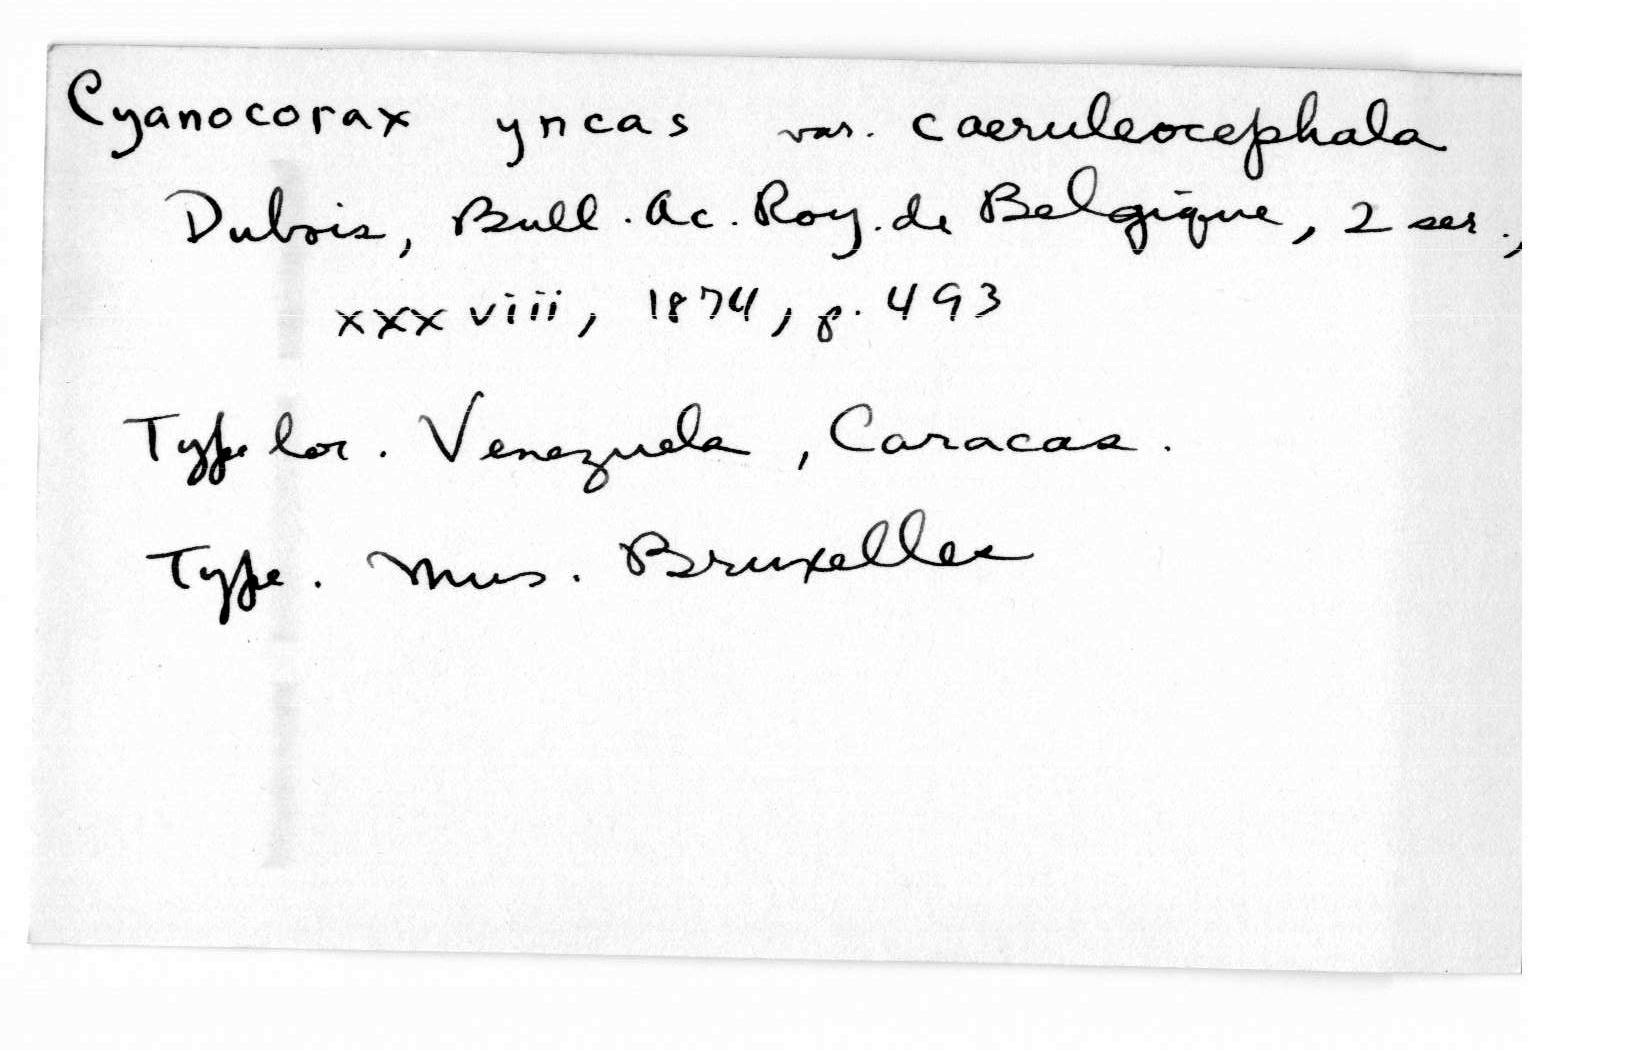 Cyanocorax yncas var. caeruleocephala
Dubois, Bull. Ac. Roy. de Belgique, 2 ser.,
xxxviii, 1874, p. 493
Type loc. Venezuela, Caracas.
Type. Mus. Bruxelles